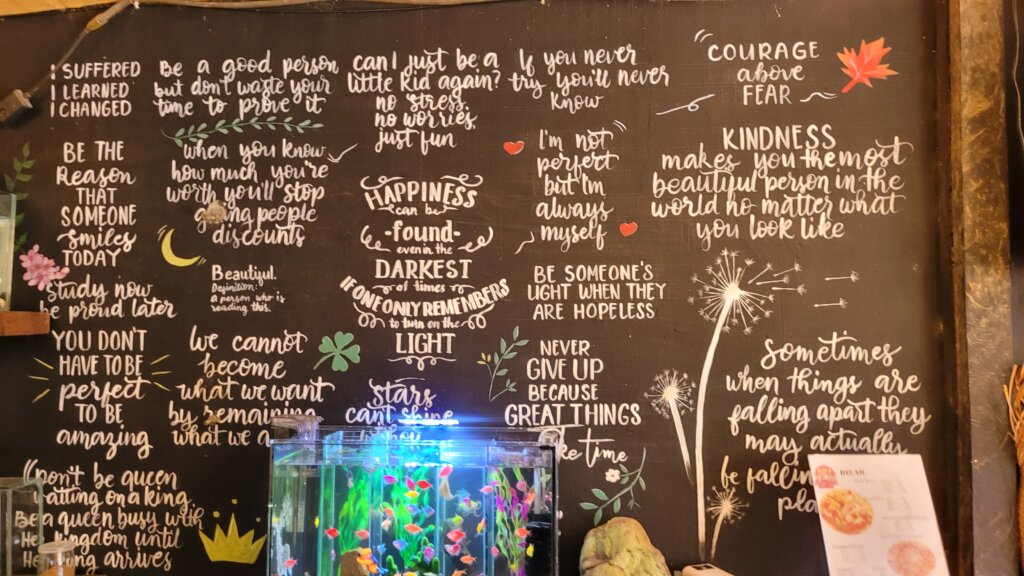 I SUFFERED
I LEARNED
I CHANGED
Be a good person
but don't waste your
time to prove it
can I just be a
little kid again?
no stress,
no worries,
just fun
If you never
try you'll never
know
COURAGE
above
FEAR
BE THE
Reason
THAT
SOMEONE
smiles
TODAY
when you know
how much you're
worth you'll stop
going people
discounts
HAPPINESS
can be
-found-
even in the
DARKEST
of times
IF ONE ONLY REMEMBERS
to turn on the
LIGHT
I'm not
perfect
but I'm
always
myself
KINDNESS
makes you the most
beautiful person in the
world no matter what
you look like
Study now
be proud later
Beautiful.
Definition:
a person who is
reading this.
BE SOMEONE'S
LIGHT WHEN THEY
ARE HOPELESS
YOU DON'T
HAVE TO BE
perfect
TO BE
amazing
We cannot
become
what we want
by remaining
what we a
Stars
can't shine
NEVER
GIVE UP
BECAUSE
GREAT THINGS
ke time
Sometimes
when things are
falling apart they
may actually
be fallin
pla
Don't be queen
waiting on a king,
Be a queen busy with
Her kingdom until
Her king arrives
BILAO